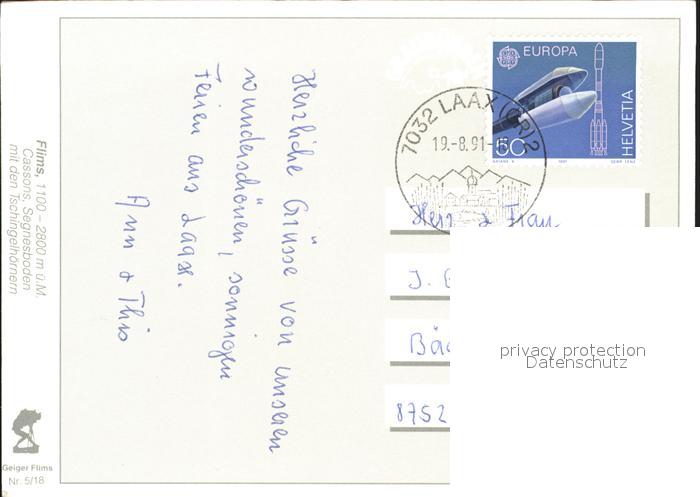 Herzliche Grüsse von unseren
wunderschönen, sonnigen
Ferien aus Laax.
Ann + This
Flims, 1100 – 2800 m ü.M.
Cassons, Segnesboden
mit den Tschingelhörnern
Geiger Flims
Nr. 5/18
EUROPA
HELVETIA
50
ARIANE 4
1991
7032 LAAX (GR) 2
19.-8.91.-
Herr + Frau
J.
8752
privacy protection
Datenschutz